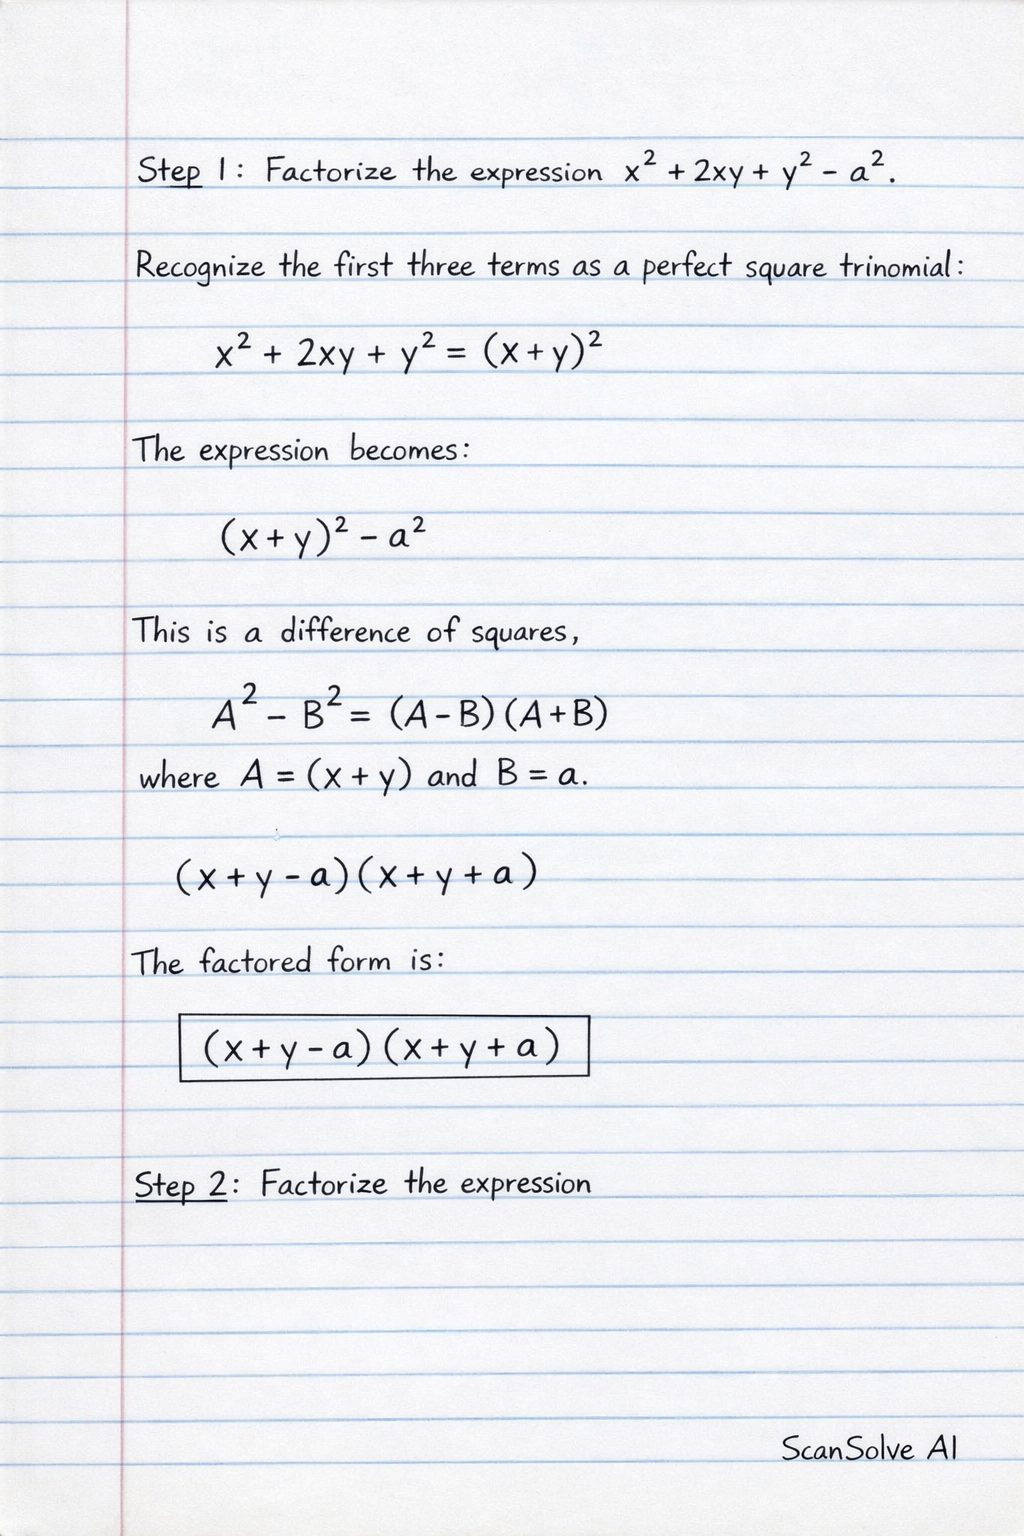 Step 1: Factorize the expression x² + 2xy + y² - a².
Recognize the first three terms as a perfect square trinomial:
x² + 2xy + y² = (x+y)²
The expression becomes:
(x+y)² - a²
This is a difference of squares,
A² - B² = (A-B)(A+B)
where A = (x+y) and B = a.
(x+y-a)(x+y+a)
The factored form is:
(x+y-a)(x+y+a)
Step 2: Factorize the expression
ScanSolve AI